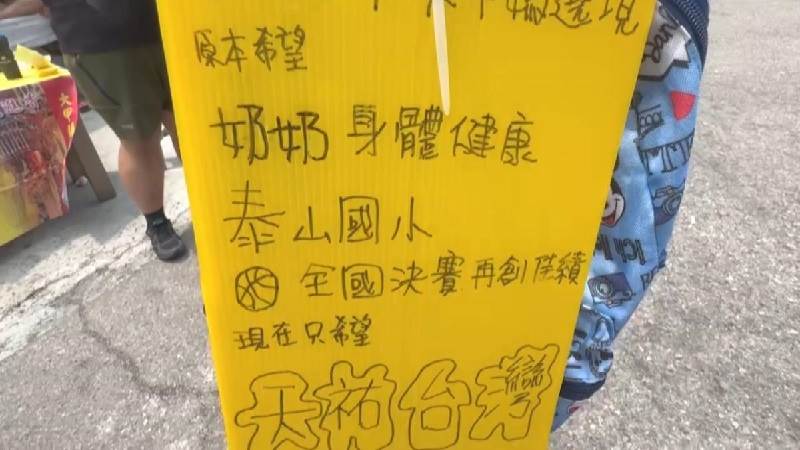 原本希望
奶奶身體健康
泰山國小
全國決賽再創佳績
現在只希望
天祐台灣